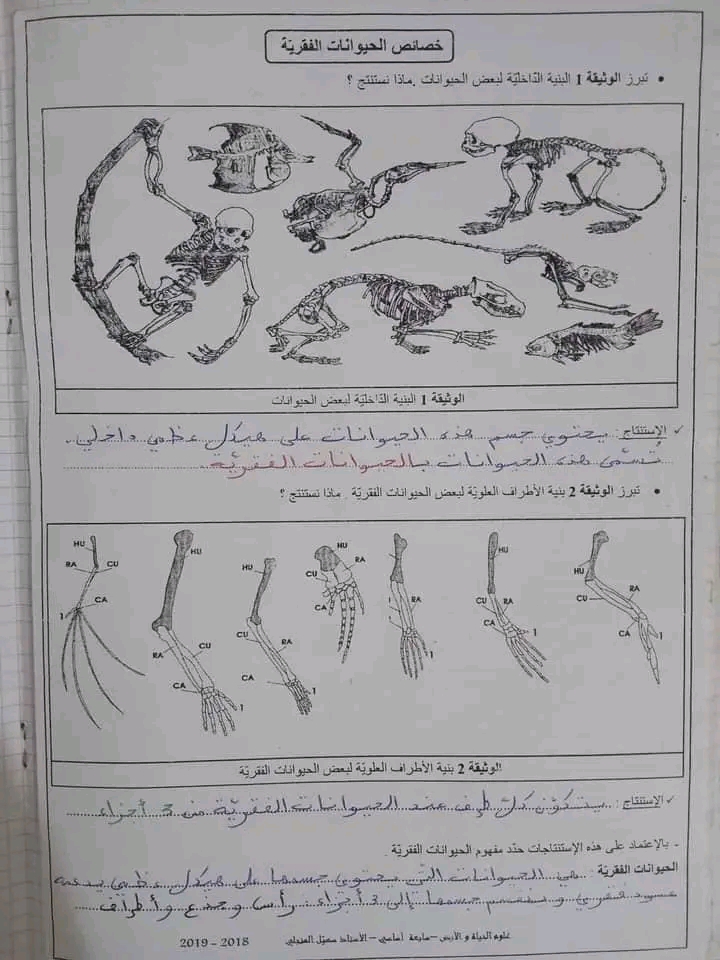 خصائص الحيوانات الفقريّة
• تبرز الوثيقة 1 البنية الدّاخليّة لبعض الحيوانات .ماذا نستنتج ؟
الوثيقة 1 البنية الدّاخليّة لبعض الحيوانات
✓ الإستنتاج : يحتوي جسم هذه الحيوانات على هيكل عظمي داخلي.
تُسمّى هذه الحيوانات بالحيوانات الفقريّة.
• تبرز الوثيقة 2 بنية الأطراف العلويّة لبعض الحيوانات الفقريّة . ماذا نستنتج ؟
HU RA CU CA 1
HU RA CU CA 1
HU CU RA CA 1
HU RA CU CA
HU RA 1
HU CU RA CA 1
HU RA CU CA 1
الوثيقة 2 بنية الأطراف العلويّة لبعض الحيوانات الفقريّة
✓ الإستنتاج : يتكوّن كلّ طرف عند الحيوانات الفقريّة من 3 أجزاء
- بالإعتماد على هذه الإستنتاجات حدّد مفهوم الحيوانات الفقريّة .
الحيوانات الفقريّة : هي الحيوانات التي يحتوي جسمها على هيكل عظمي يدعمه
عمود فقري و ينقسم جسمها إلى 3 أجزاء : رأس و جذع و أطراف
علوم الحياة و الأرض – سابعة أساسي – الأستاذ 2018 - 2019